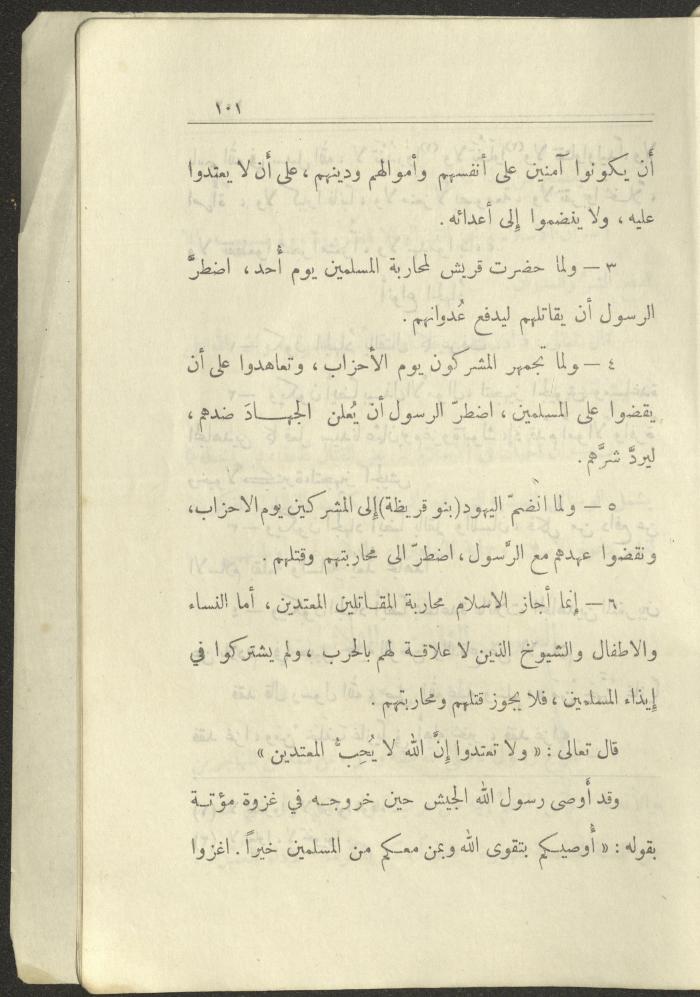 ١٠١
أن يكونوا آمنين على أنفسهم وأموالهم ودينهم ، على أن لا يعتدوا
عليه ، ولا ينضموا إلى أعدائه .
٣ — ولما حضرت قريش لمحاربة المسلمين يوم أُحد ، اضطرَّ
الرسول أن يقاتلهم ليدفع عُدوانهم .
٤ — ولما تجمهر المشركون يوم الأحزاب ، وتعاهدوا على أن
يقضوا على المسلمين ، اضطرّ الرسول أن يُعلن الجهـادَ ضدهم ،
ليردَّ شرَّهم .
٥ — ولما انضمّ اليهود (بنو قريظة) إلى المشركين يوم الاحزاب ،
ونقضوا عهدهم مع الرَّسول ، اضطرّ الى محاربتهم وقتلهم .
٦ — إنما أجاز الاسلام محاربة المقـاتلين المعتدين ، أما النساء
والاطفال والشيوخ الذين لا علاقـة لهم بالحرب ، ولم يشتركوا في
إيذاء المسلمين ، فلا يجوز قتلهم ومحاربتهم .
قال تعالى : « ولا تعتدوا إنَّ الله لا يُحِبُّ المعتدين »
وقد أوصى رسول الله الجيش حين خروجـه في غزوة مؤتـة
بقوله : « أُوصيكم بتقوى الله وبمن معكم من المسلمين خيراً . اغزوا